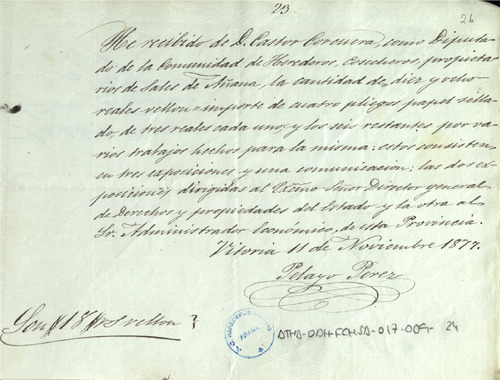 23.
26
He recibido de D. Castor Corcuera, como Diputa-
do de la Comunidad de Herederos, Cosecheros, propieta-
rios de Sales de Añana, la cantidad de, diez y ocho
reales vellon importe de cuatro pliegos papel sella-
do, de tres reales cada uno, y los seis restantes por va-
rios trabajos hechos para la misma: estos consisten
en tres exposiciones y una comunicacion: las dos ex-
posiciones dirigidas al Excmo Señor Director general
de Derechos y propiedades del Estado y la otra al
Sr. Administrador Economico, de esta Provincia.
Vitoria 11 de Noviembre 1877.
Pelayo Perez
Son 18 rs vellon
AÑANA
ATHA-DAH-FCHSA-017-009- 24